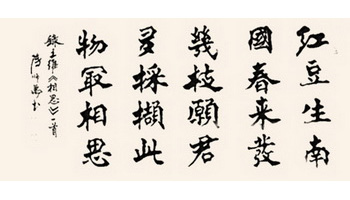 紅豆生南
國春来發
幾枝願君
多採擷此
物最相思
錄王維《相思》一首